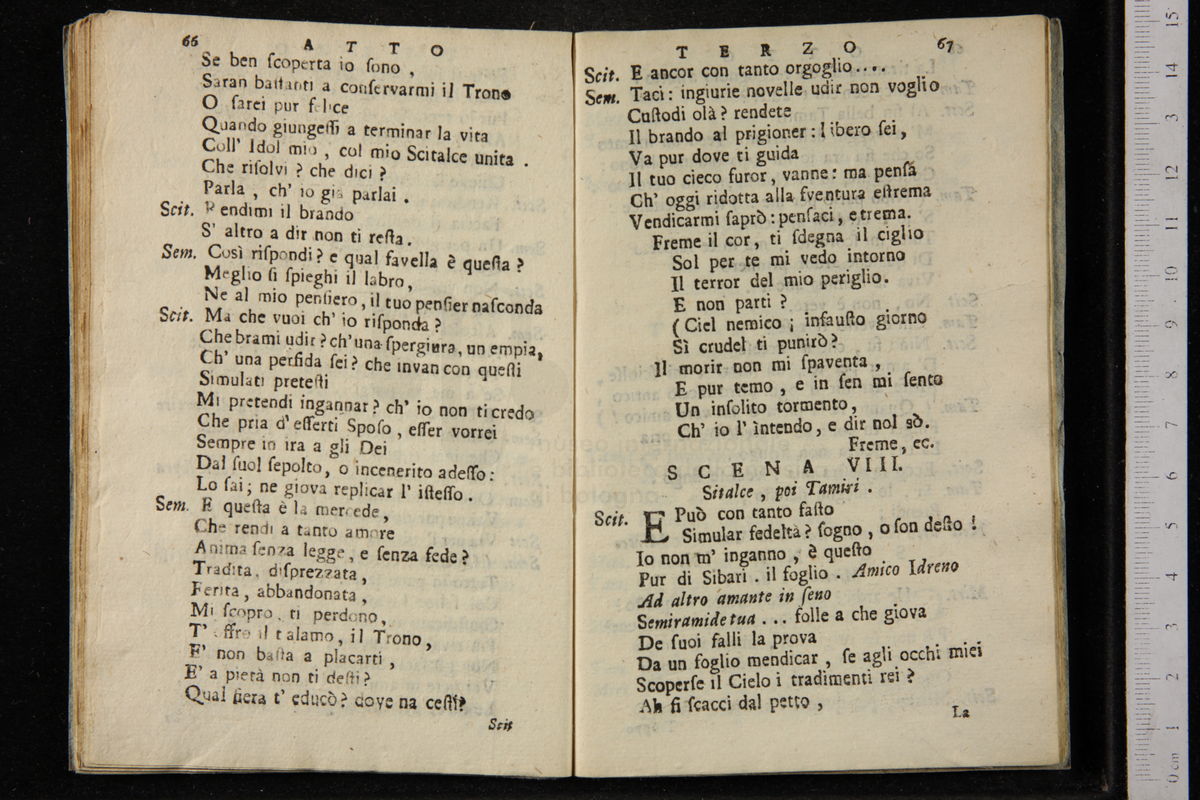 66 ATTO
Se ben ſcoperta io ſono ,
Saran baſtanti a conſervarmi il Trono
O ſarei pur felice
Quando giungeſſi a terminar la vita
Coll' Idol mio , col mio Scitalce unita .
Che riſolvi ? che dici ?
Parla , ch' io già parlai .
Scit. Rendimi il brando
S' altro a dir non ti reſta .
Sem. Così riſpondi ? e qual favella è queſta ?
Meglio ſi ſpieghi il labro ,
Ne al mio penſiero , il tuo penſier naſconda
Scit. Ma che vuoi ch' io riſponda ?
Che brami udir ? ch' una ſpergiura , un empia ,
Ch' una perfida ſei ? che invan con queſti
Simulati preteſti
Mi pretendi ingannar ? ch' io non ti credo
Che pria d' eſſerti Spoſo , eſſer vorrei
Sempre in ira a gli Dei
Dal ſuol ſepolto , o incenerito adeſſo :
Lo ſai ; ne giova replicar l' iſteſſo .
Sem. E queſta è la mercede ,
Che rendi a tanto amore
Anima ſenza legge , e ſenza fede ?
Tradita , diſprezzata ,
Ferita , abbandonata ,
Mi ſcopro , ti perdono ,
T' offro il talamo , il Trono ,
E' non baſta a placarti ,
E' a pietà non ti deſti ?
Qual fiera t' educò ? dove na ceſti ?
Scit
TERZO 67
Scit. E ancor con tanto orgoglio ....
Sem. Taci : ingiurie novelle udir non voglio
Cuſtodi olà ? rendete
Il brando al prigioner : libero ſei ,
Va pur dove ti guida
Il tuo cieco furor , vanne : ma penſa
Ch' oggi ridotta alla ſventura eſtrema
Vendicarmi ſaprò : penſaci , e trema .
Freme il cor , ti ſdegna il ciglio
Sol per te mi vedo intorno
Il terror del mio periglio .
E non parti ?
( Ciel nemico ; infauſto giorno
Sì crudel ti punirò ?
Il morir non mi ſpaventa ,
E pur temo , e in ſen mi ſento
Un inſolito tormento ,
Ch' io l' ìntendo , e dir nol sò .
Freme , ec.
SCENA VIII.
Sitalce , poi Tamiri .
Scit. E Può con tanto faſto
Simular fedeltà ? ſogno , o ſon deſto !
Io non m' inganno , è queſto
Pur di Sibari . il foglio . Amico Idreno
Ad altro amante in ſeno
Semiramide tua ... folle a che giova
De ſuoi falli la prova
Da un foglio mendicar , ſe agli occhi miei
Scoperſe il Cielo i tradimenti rei ?
Ah ſi ſcacci dal petto ,
La